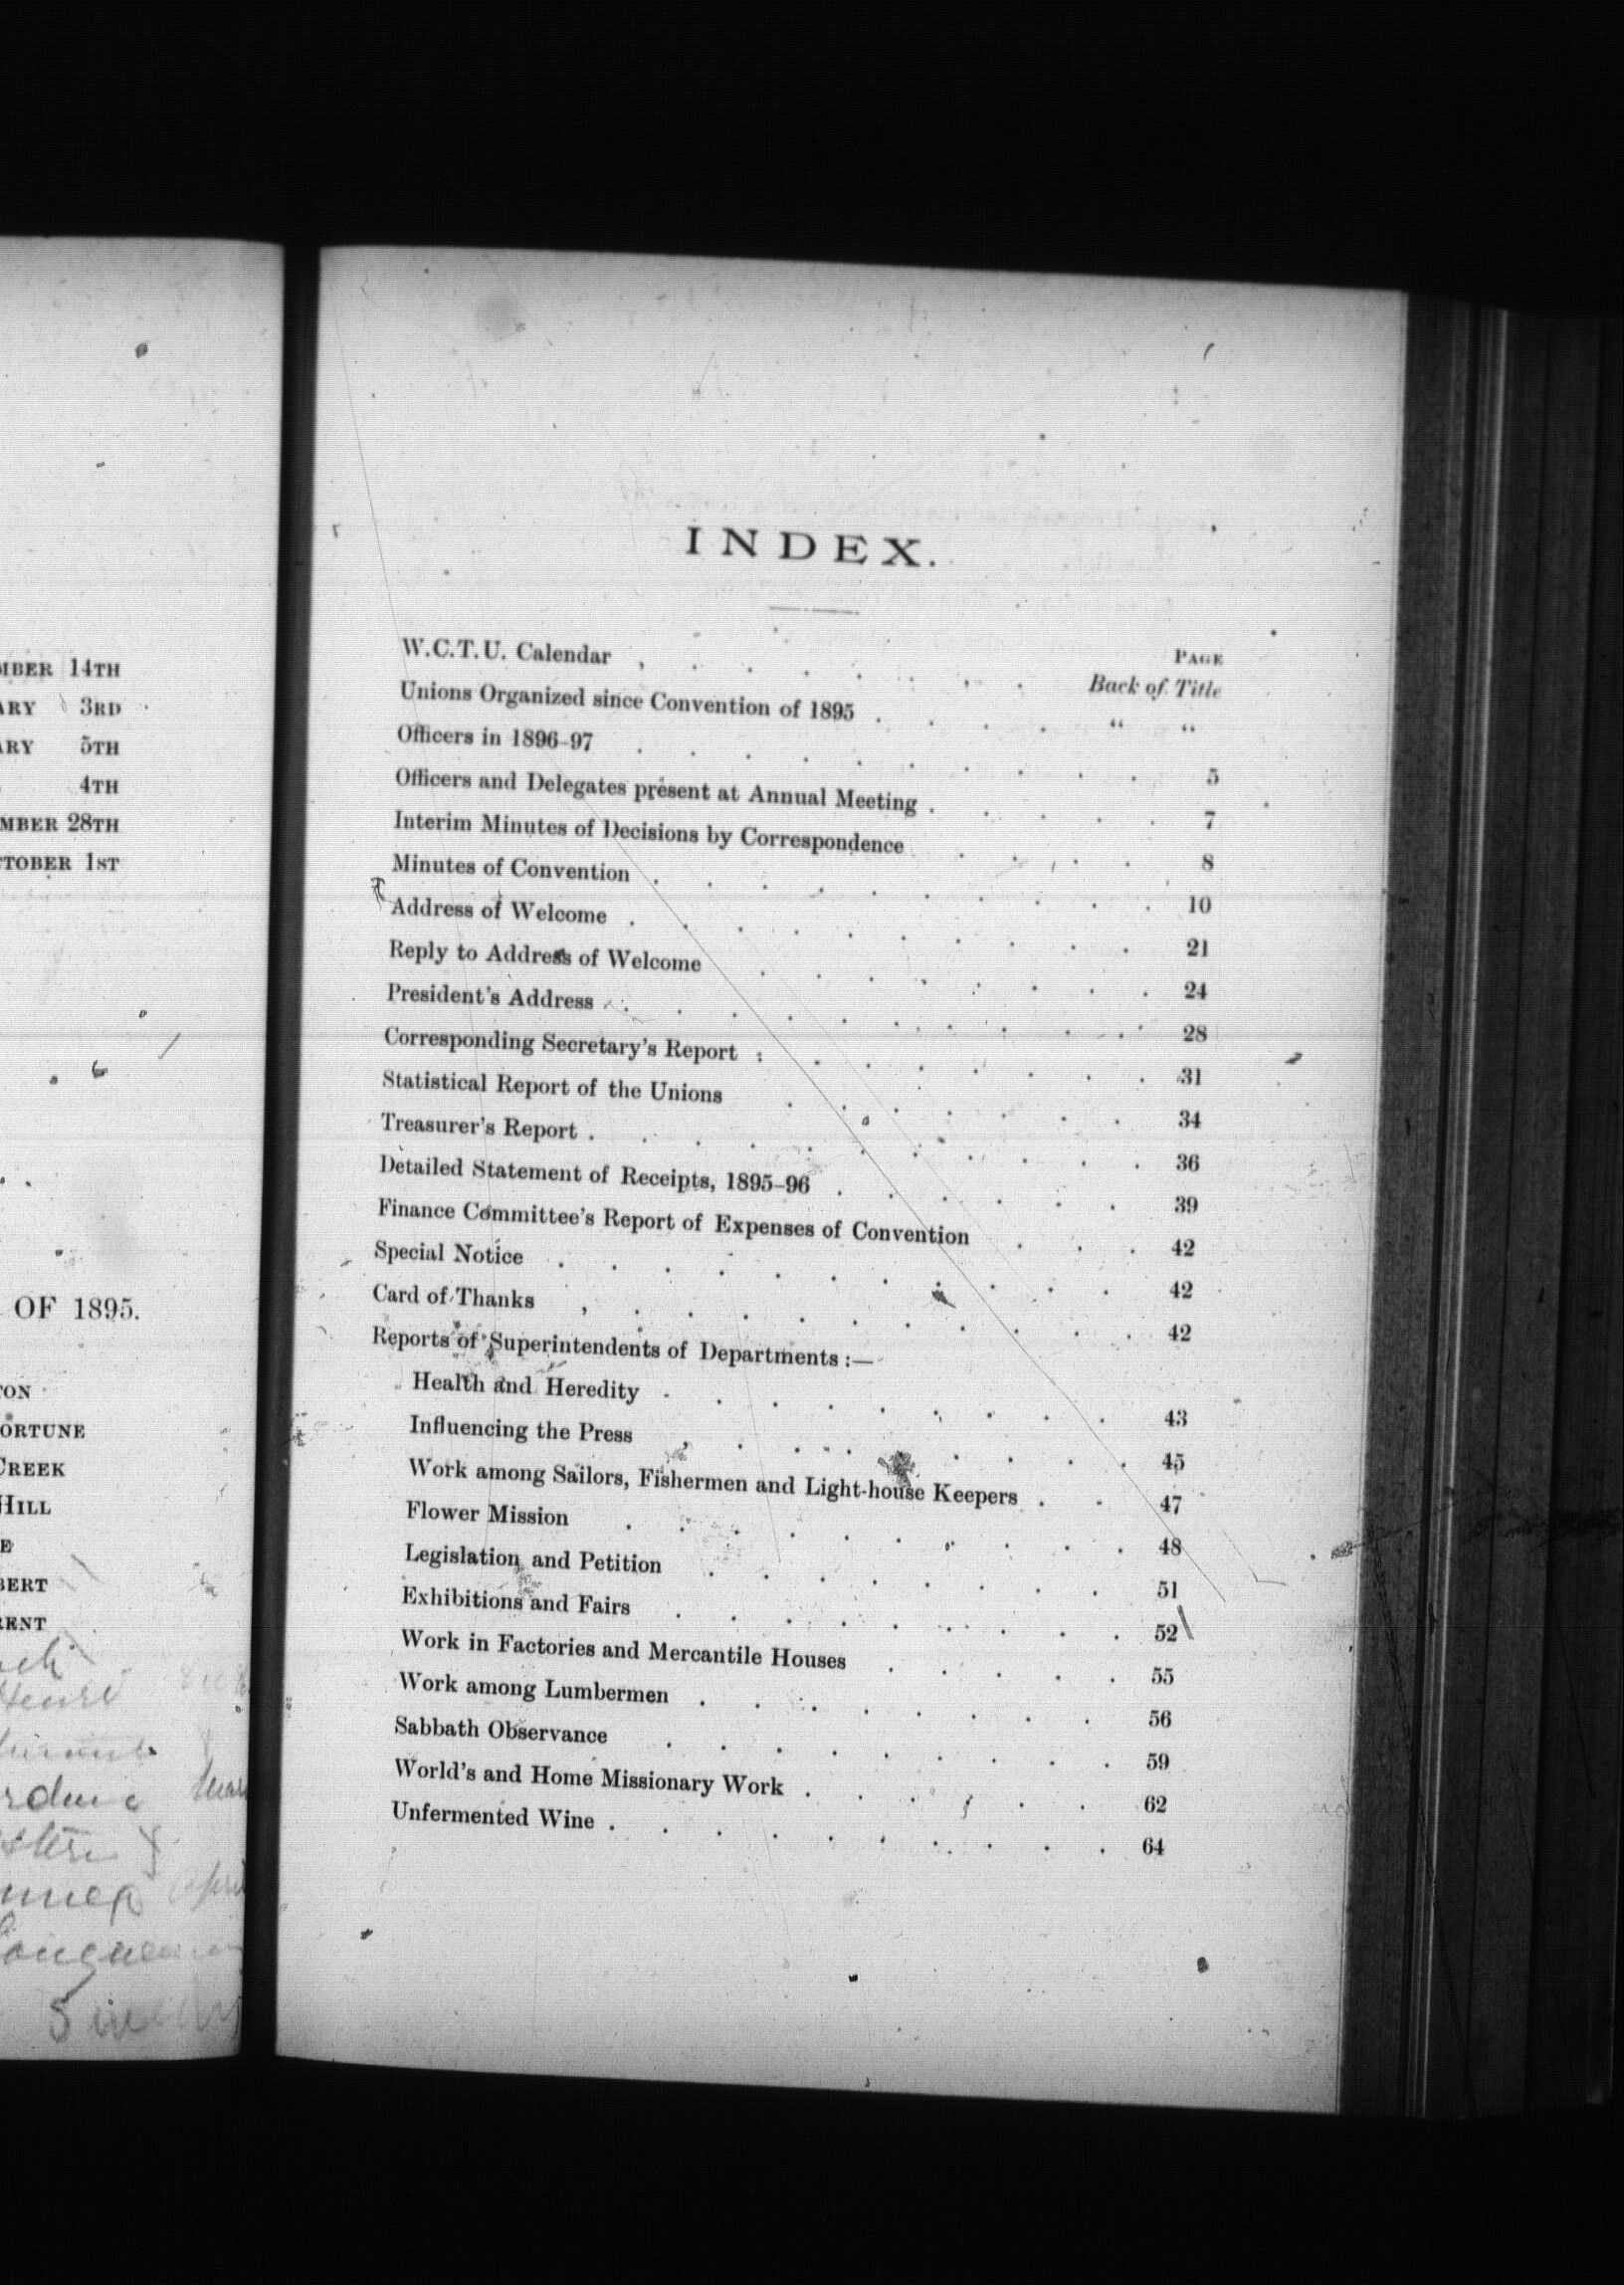 14TH
3RD
5TH
4TH
28TH
1ST
OF 1895.
CREEK
HILL
INDEX.
PAGE
W.C.T.U. Calendar , . . . . . . . Back of Title
Unions Organized since Convention of 1895 . . . . “ “
Officers in 1896-97 . . . . . . . . . . 5
Officers and Delegates present at Annual Meeting . . . . . 7
Interim Minutes of Decisions by Correspondence . . . . 8
Minutes of Convention . . . . . . . . . . 10
Address of Welcome . . . . . . . . . . 21
Reply to Address of Welcome . . . . . . . . 24
President's Address . . . . . . . . . . 28
Corresponding Secretary's Report : . . . . . . . 31
Statistical Report of the Unions . . . . . . 34
Treasurer's Report . . . . . . . . . . . 36
Detailed Statement of Receipts, 1895-96 . . . . . . 39
Finance Committee's Report of Expenses of Convention . . . 42
Special Notice . . . . . . . . . . . 42
Card of Thanks , . . . . . . . . . . 42
Reports of Superintendents of Departments :—
Health and Heredity . . . . . . . . . 43
Influencing the Press , . . . . . . . . 45
Work among Sailors, Fishermen and Light-house Keepers . . 47
Flower Mission . . . . . . . . . . 48
Legislation and Petition . . . . . . . . 51
Exhibitions and Fairs . . . . . . . . . 52
Work in Factories and Mercantile Houses . . . . . 55
Work among Lumbermen . . . . . . . . 56
Sabbath Observance . . . . . . . . . 59
World's and Home Missionary Work . . . . . . 62
Unfermented Wine . . . . . . . . . . 64